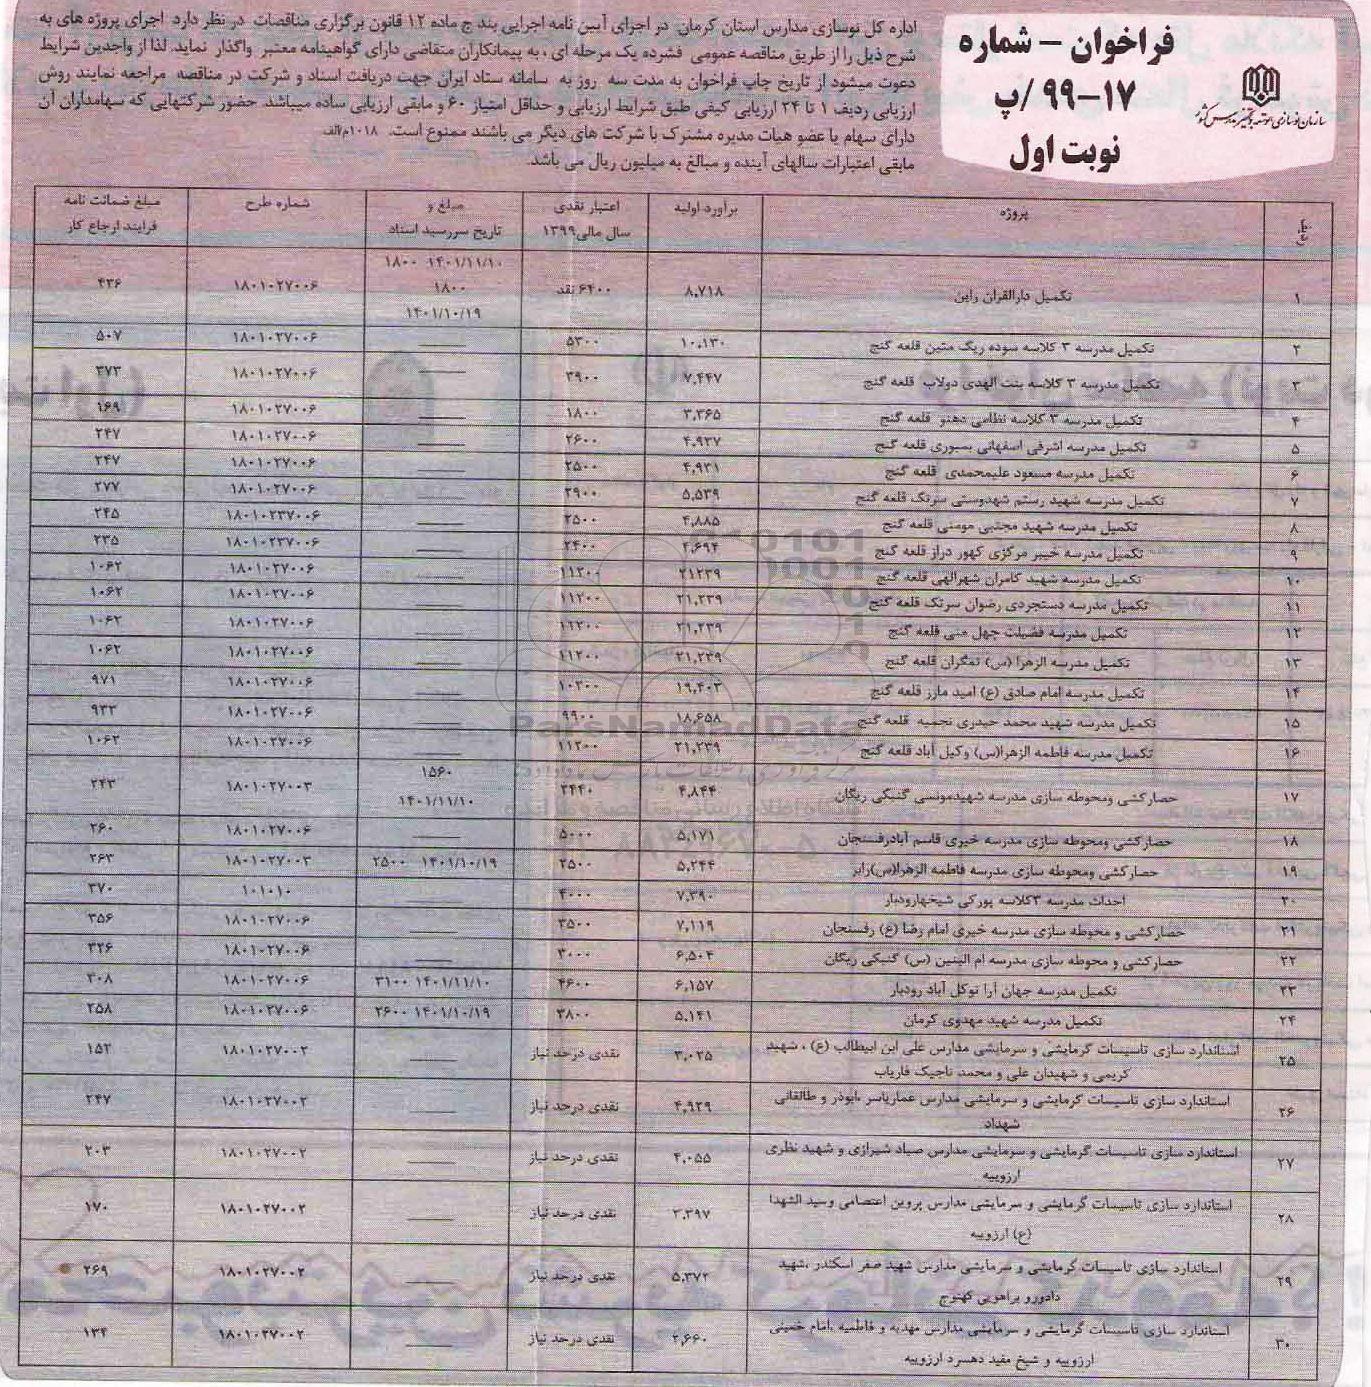 فراخوان – شماره
۹۹-۱۷/پ
نوبت اول
سازمان نوسازی، توسعه و تجهیز مدارس کشور
اداره کل نوسازی مدارس استان کرمان در اجرای آیین نامه اجرایی بند ج ماده ۱۲ قانون برگزاری مناقصات در نظر دارد اجرای پروژه های به
شرح ذیل را از طریق مناقصه عمومی فشرده یک مرحله ای ، به پیمانکاران متقاضی دارای گواهینامه معتبر واگذار نماید. لذا از واجدین شرایط
دعوت میشود از تاریخ چاپ فراخوان به مدت سه روز به سامانه ستاد ایران جهت دریافت اسناد و شرکت در مناقصه مراجعه نمایند روش
ارزیابی ردیف ۱ تا ۲۴ ارزیابی کیفی طبق شرایط ارزیابی و حداقل امتیاز ۶۰ و مابقی ارزیابی ساده میباشد. حضور شرکتهایی که سهامداران آن
دارای سهام یا عضو هیات مدیره مشترک با شرکت های دیگر می باشند ممنوع است. ۱۰۱۸م/الف
مابقی اعتبارات سالهای آینده و مبالغ به میلیون ریال می باشد.
ردیف پروژه برآورد اولیه اعتبار نقدی سال مالی۱۳۹۹ مبلغ و تاریخ سررسید اسناد شماره طرح مبلغ ضمانت نامه فرایند ارجاع کار
۱ تکمیل دارالقران راین ۸,۷۱۸ ۶۴۰۰ نقد ۱۴۰۱/۱۱/۱۰ ۱۸۰۰ ۱۸۰۰ ۱۴۰۱/۱۰/۱۹ ۱۸۰۱۰۲۷۰۰۶ ۴۳۶
۲ تکمیل مدرسه ۳ کلاسه سوده ریگ متین قلعه گنج ۱۰,۱۳۰ ۵۳۰۰ ۱۸۰۱۰۲۷۰۰۶ ۵۰۷
۳ تکمیل مدرسه ۳ کلاسه بنت الهدی دولاب قلعه گنج ۷,۴۴۷ ۳۹۰۰ ۱۸۰۱۰۲۷۰۰۶ ۳۷۳
۴ تکمیل مدرسه ۳ کلاسه نظامی دهنو قلعه گنج ۳,۳۶۵ ۱۸۰۰ ۱۸۰۱۰۲۷۰۰۶ ۱۶۹
۵ تکمیل مدرسه اشرفی اصفهانی بمبوری قلعه گنج ۴,۹۳۷ ۲۶۰۰ ۱۸۰۱۰۲۷۰۰۶ ۲۴۷
۶ تکمیل مدرسه مسعود علیمحمدی قلعه گنج ۴,۹۳۱ ۲۵۰۰ ۱۸۰۱۰۲۷۰۰۶ ۲۴۷
۷ تکمیل مدرسه شهید رستم شهدوستی سرتک قلعه گنج ۵,۵۳۹ ۲۹۰۰ ۱۸۰۱۰۲۷۰۰۶ ۲۷۷
۸ تکمیل مدرسه شهید مجتبی مومنی قلعه گنج ۴,۸۸۵ ۲۵۰۰ ۱۸۰۱۰۲۳۷۰۰۶ ۲۴۵
۹ تکمیل مدرسه خیبر مرکزی کهور دراز قلعه گنج ۴,۶۹۴ ۲۴۰۰ ۱۸۰۱۰۲۳۷۰۰۶ ۲۳۵
۱۰ تکمیل مدرسه شهید کامران شهرالهی قلعه گنج ۲۱۲۳۹ ۱۱۲۰۰ ۱۸۰۱۰۲۷۰۰۶ ۱۰۶۲
۱۱ تکمیل مدرسه دستجردی رضوان سرتک قلعه گنج ۲۱,۲۳۹ ۱۱۲۰۰ ۱۸۰۱۰۲۷۰۰۶ ۱۰۶۲
۱۲ تکمیل مدرسه فضیلت چهل منی قلعه گنج ۲۱,۲۳۹ ۱۱۲۰۰ ۱۸۰۱۰۲۷۰۰۶ ۱۰۶۲
۱۳ تکمیل مدرسه الزهرا (س) تمگران قلعه گنج ۲۱,۲۳۹ ۱۱۲۰۰ ۱۸۰۱۰۲۷۰۰۶ ۱۰۶۲
۱۴ تکمیل مدرسه امام صادق (ع) امید مارز قلعه گنج ۱۹,۴۰۳ ۱۰۲۰۰ ۱۸۰۱۰۲۷۰۰۶ ۹۷۱
۱۵ تکمیل مدرسه شهید محمد حیدری نجمیه قلعه گنج ۱۸,۶۵۸ ۹۹۰۰ ۱۸۰۱۰۲۷۰۰۶ ۹۳۳
۱۶ تکمیل مدرسه فاطمه الزهرا(س) وکیل آباد قلعه گنج ۲۱,۲۳۹ ۱۱۲۰۰ ۱۸۰۱۰۲۷۰۰۶ ۱۰۶۲
۱۷ حصارکشی ومحوطه سازی مدرسه شهیدمونسی گنبکی ریگان ۴,۸۴۴ ۳۴۴۰ ۱۵۶۰ ۱۴۰۱/۱۱/۱۰ ۱۸۰۱۰۲۷۰۰۳ ۲۴۳
۱۸ حصارکشی ومحوطه سازی مدرسه خیری قاسم آبادرفسنجان ۵,۱۷۱ ۵۰۰۰ ۱۸۰۱۰۲۷۰۰۶ ۲۶۰
۱۹ حصارکشی ومحوطه سازی مدرسه فاطمه الزهرا(س)رابر ۵,۲۴۴ ۲۵۰۰ ۱۴۰۱/۱۰/۱۹ ۲۵۰۰ ۱۸۰۱۰۲۷۰۰۳ ۲۶۳
۲۰ احداث مدرسه ۳کلاسه پورکی شیخهارودبار ۷,۳۹۰ ۴۰۰۰ ۱۰۱۰۱۰ ۳۷۰
۲۱ حصارکشی و محوطه سازی مدرسه خیری امام رضا (ع) رفسنجان ۷,۱۱۹ ۳۵۰۰ ۱۸۰۱۰۲۷۰۰۶ ۳۵۶
۲۲ حصارکشی و محوطه سازی مدرسه ام البنین (س) گنبکی ریگان ۶,۵۰۴ ۳۰۰۰ ۱۸۰۱۰۲۷۰۰۶ ۳۲۶
۲۳ تکمیل مدرسه جهان آرا توکل آباد رودبار ۶,۱۵۷ ۴۶۰۰ ۱۴۰۱/۱۱/۱۰ ۳۱۰۰ ۱۸۰۱۰۲۷۰۰۶ ۳۰۸
۲۴ تکمیل مدرسه شهید مهدوی کرمان ۵,۱۴۱ ۳۸۰۰ ۱۴۰۱/۱۰/۱۹ ۲۶۰۰ ۱۸۰۱۰۲۷۰۰۶ ۲۵۸
۲۵ استاندارد سازی تاسیسات گرمایشی و سرمایشی مدارس علی ابن ابیطالب (ع) ، شهید کریمی و شهیدان علی و محمد تاجیک فاریاب ۳,۰۲۵ نقدی درحد نیاز ۱۸۰۱۰۲۷۰۰۲ ۱۵۲
۲۶ استاندارد سازی تاسیسات گرمایشی و سرمایشی مدارس عماریاسر ،ابوذر و طالقانی شهداد ۴,۹۲۹ نقدی درحد نیاز ۱۸۰۱۰۲۷۰۰۲ ۲۴۷
۲۷ استاندارد سازی تاسیسات گرمایشی و سرمایشی مدارس صیاد شیرازی و شهید نظری ارزوییه ۴,۰۵۵ نقدی درحد نیاز ۱۸۰۱۰۲۷۰۰۲ ۲۰۳
۲۸ استاندارد سازی تاسیسات گرمایشی و سرمایشی مدارس پروین اعتصامی وسید الشهدا (ع) ارزوییه ۳,۳۹۷ نقدی درحد نیاز ۱۸۰۱۰۲۷۰۰۲ ۱۷۰
۲۹ استاندارد سازی تاسیسات گرمایشی و سرمایشی مدارس شهید صفر اسکندر ،شهید دادورو براهویی کهنوج ۵,۳۷۲ نقدی درحد نیاز ۱۸۰۱۰۲۷۰۰۲ ۲۶۹
۳۰ استاندارد سازی تاسیسات گرمایشی و سرمایشی مدارس مهدیه و فاطمیه ،امام خمینی ارزوییه و شیخ مفید دهسرد ارزوییه ۲,۶۶۰ نقدی درحد نیاز ۱۸۰۱۰۲۷۰۰۲ ۱۳۴
ParsNamadData